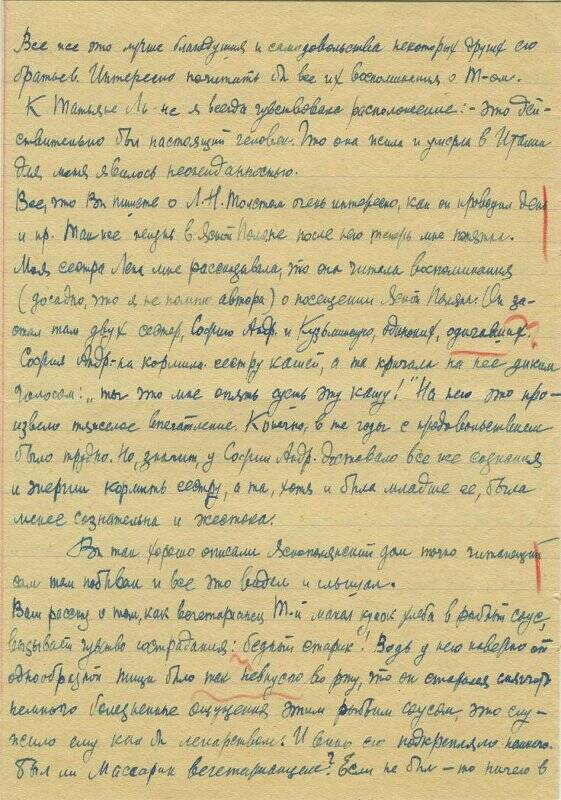 Все же это лучше благодушия и самодовольства некоторых других его
братьев. Интересно почитать бы все их воспоминания о Т-ом.
К Татьяне Ль-не я всегда чувствовала расположение: - это дей-
ствительно был настоящий человек. Что она жила и умерла в Италии
для меня явилось неожиданностью.
Все, что Вы пишете о Л.Н. Толстом очень интересно, как он проводил день
и пр. Также жизнь в Ясной Поляне после него теперь мне понятна.
Моя сестра Лена мне рассказывала, что она читала воспоминания
(досадно, что я не помню автора) о посещении Ясной Поляны: Он за-
стал там двух сестер, Софию Андр. и Кузьминскую, одиноких, одичавших.
София Андр-на кормила сестру кашей, а та кричала на нее диким
голосом: „ты что мне опять суешь эту кашу!" На него это про-
извело тяжелое впечатление. Конечно, в те годы с продовольствием
было трудно. Но, значит, у Софии Андр. доставало все же сознания
и энергии кормить сестру, а та, хотя и была младше ее, была
менее сознательна и жестока.
Вы так хорошо описали Яснополянский дом точно читающий
сам там побывал и все это видел и слышал.
Ваш рассказ о том, как вегетарианец Т-й макал кусок хлеба в рыбный соус,
вызывает чувство сострадания: бедный старик! Ведь у него наверно от
однообразной пищи было так невкусно во рту, что он старался смягчить
немного болезненные ощущения этим рыбным соусом, это слу-
жило ему как бы лекарством. И вино его подкрепляло немного.
Был ли Массарик вегетарианцем? Если не был – то ничего в